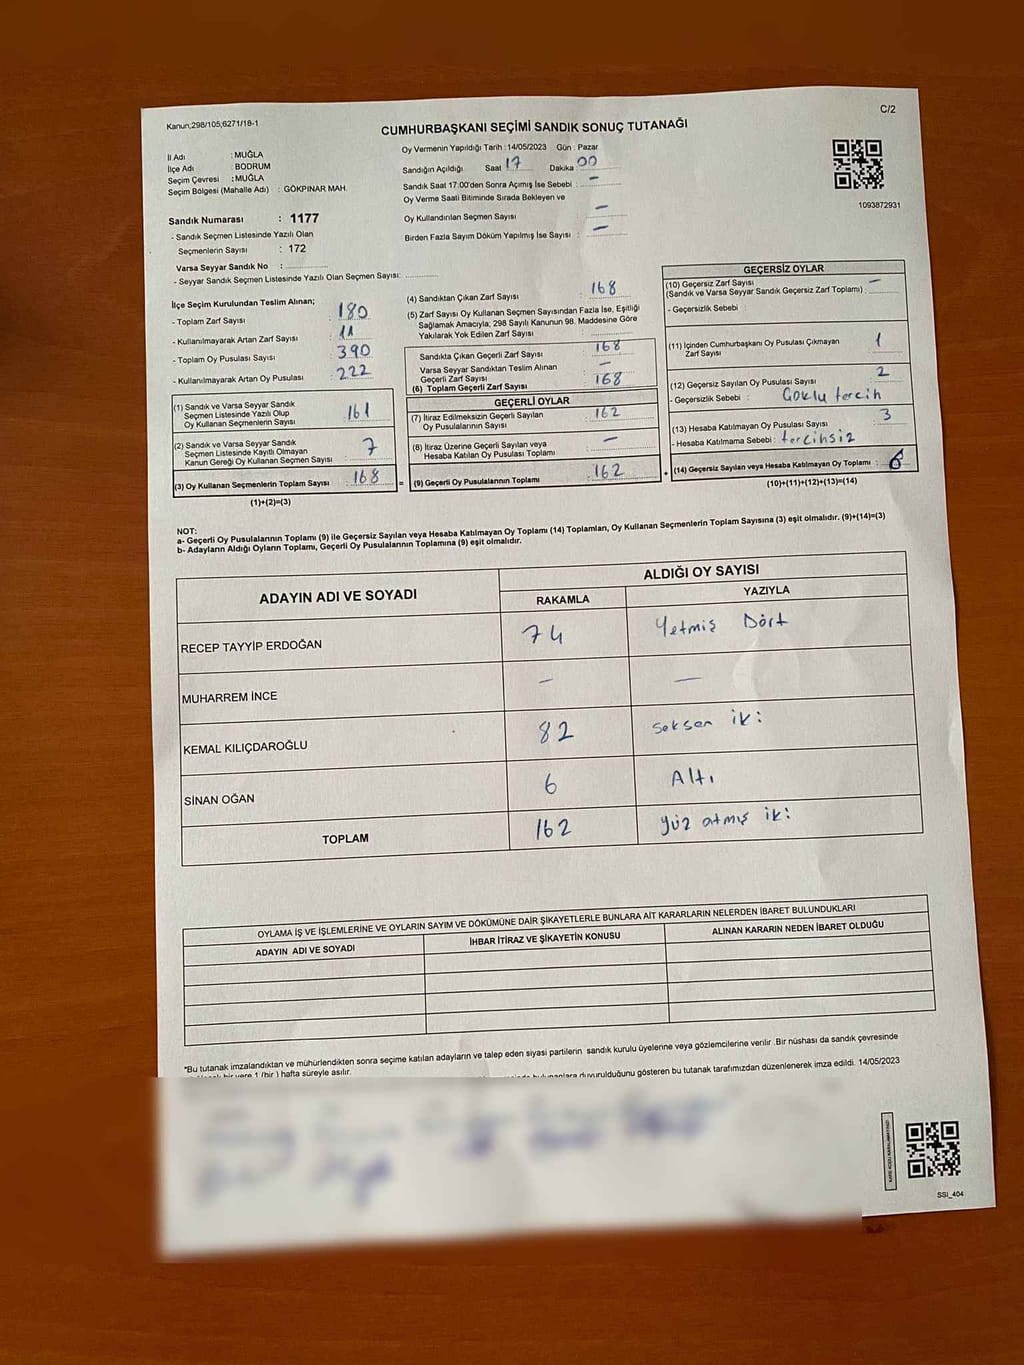 Kanun;298/105;6271/18-1
C/2
CUMHURBAŞKANI SEÇİMİ SANDIK SONUÇ TUTANAĞI
İl Adı : MUĞLA
İlçe Adı : BODRUM
Seçim Çevresi : MUĞLA
Seçim Bölgesi (Mahalle Adı) : GÖKPINAR MAH.
Sandık Numarası : 1177
- Sandık Seçmen Listesinde Yazılı Olan
Seçmenlerin Sayısı : 172
Varsa Seyyar Sandık No :
- Seyyar Sandık Seçmen Listesinde Yazılı Olan Seçmen Sayısı:
Oy Vermenin Yapıldığı Tarih : 14/05/2023 Gün : Pazar
Sandığın Açıldığı Saat 17 Dakika 00
Sandık Saat 17:00'den Sonra Açılmış İse Sebebi : -
Oy Verme Saati Bitiminde Sırada Bekleyen ve
Oy Kullandırılan Seçmen Sayısı -
Birden Fazla Sayım Döküm Yapılmış İse Sayısı : -
1093872931
İlçe Seçim Kurulundan Teslim Alınan;
- Toplam Zarf Sayısı : 180
- Kullanılmayarak Artan Zarf Sayısı : 11
- Toplam Oy Pusulası Sayısı : 390
- Kullanılmayarak Artan Oy Pusulası : 222
(1) Sandık ve Varsa Seyyar Sandık
Seçmen Listesinde Yazılı Olup
Oy Kullanan Seçmenlerin Sayısı : 161
(2) Sandık ve Varsa Seyyar Sandık
Seçmen Listesinde Kayıtlı Olmayan
Kanun Gereği Oy Kullanan Seçmen Sayısı : 7
(3) Oy Kullanan Seçmenlerin Toplam Sayısı : 168 =
(1)+(2)=(3)
(4) Sandıktan Çıkan Zarf Sayısı : 168
(5) Zarf Sayısı Oy Kullanan Seçmen Sayısından Fazla İse, Eşitliği
Sağlamak Amacıyla; 298 Sayılı Kanunun 98. Maddesine Göre
Yakılarak Yok Edilen Zarf Sayısı :
Sandıkta Çıkan Geçerli Zarf Sayısı : 168
Varsa Seyyar Sandıktan Teslim Alınan
Geçerli Zarf Sayısı : -
(6) Toplam Geçerli Zarf Sayısı : 168
GEÇERLİ OYLAR
(7) İtiraz Edilmeksizin Geçerli Sayılan
Oy Pusulalarının Sayısı : 162
(8) İtiraz Üzerine Geçerli Sayılan veya
Hesaba Katılan Oy Pusulası Toplamı : -
(9) Geçerli Oy Pusulalarının Toplamı : 162 +
GEÇERSİZ OYLAR
(10) Geçersiz Zarf Sayısı
(Sandık ve Varsa Seyyar Sandık Geçersiz Zarf Toplamı) : -
- Geçersizlik Sebebi :
(11) İçinden Cumhurbaşkanı Oy Pusulası Çıkmayan
Zarf Sayısı : 1
(12) Geçersiz Sayılan Oy Pusulası Sayısı : 2
- Geçersizlik Sebebi : Çoklu tercih
(13) Hesaba Katılmayan Oy Pusulası Sayısı : 3
- Hesaba Katılmama Sebebi : tercihsiz
(14) Geçersiz Sayılan veya Hesaba Katılmayan Oy Toplamı : 6
(10)+(11)+(12)+(13)=(14)
NOT:
a- Geçerli Oy Pusulalarının Toplamı (9) ile Geçersiz Sayılan veya Hesaba Katılmayan Oy Toplamı (14) Toplamları, Oy Kullanan Seçmenlerin Toplam Sayısına (3) eşit olmalıdır. (9)+(14)=(3)
b- Adayların Aldığı Oyların Toplamı, Geçerli Oy Pusulalarının Toplamına (9) eşit olmalıdır.
ADAYIN ADI VE SOYADI
ALDIĞI OY SAYISI
RAKAMLA YAZIYLA
RECEP TAYYİP ERDOĞAN 74 Yetmiş Dört
MUHARREM İNCE - -
KEMAL KILIÇDAROĞLU 82 seksen iki
SİNAN OĞAN 6 Altı
TOPLAM 162 yüz atmış iki
OYLAMA İŞ VE İŞLEMLERİNE VE OYLARIN SAYIM VE DÖKÜMÜNE DAİR ŞİKAYETLERLE BUNLARA AİT KARARLARIN NELERDEN İBARET BULUNDUKLARI
ADAYIN ADI VE SOYADI İHBAR İTİRAZ VE ŞİKAYETİN KONUSU ALINAN KARARIN NEDEN İBARET OLDUĞU
*Bu tutanak imzalandıktan ve mühürlendikten sonra seçime katılan adayların ve talep eden siyasi partilerin sandık kurulu üyelerine veya gözlemcilerine verilir .Bir nüshası da sandık çevresinde
bir yere 1 (bir ) hafta süreyle asılır.
duyurulduğunu gösteren bu tutanak tarafımızdan düzenlenerek imza edildi. 14/05/2023
SSI_404